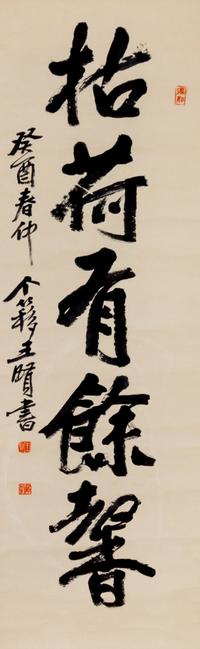 枯荷有餘馨
癸酉春仲
个簃王賢書